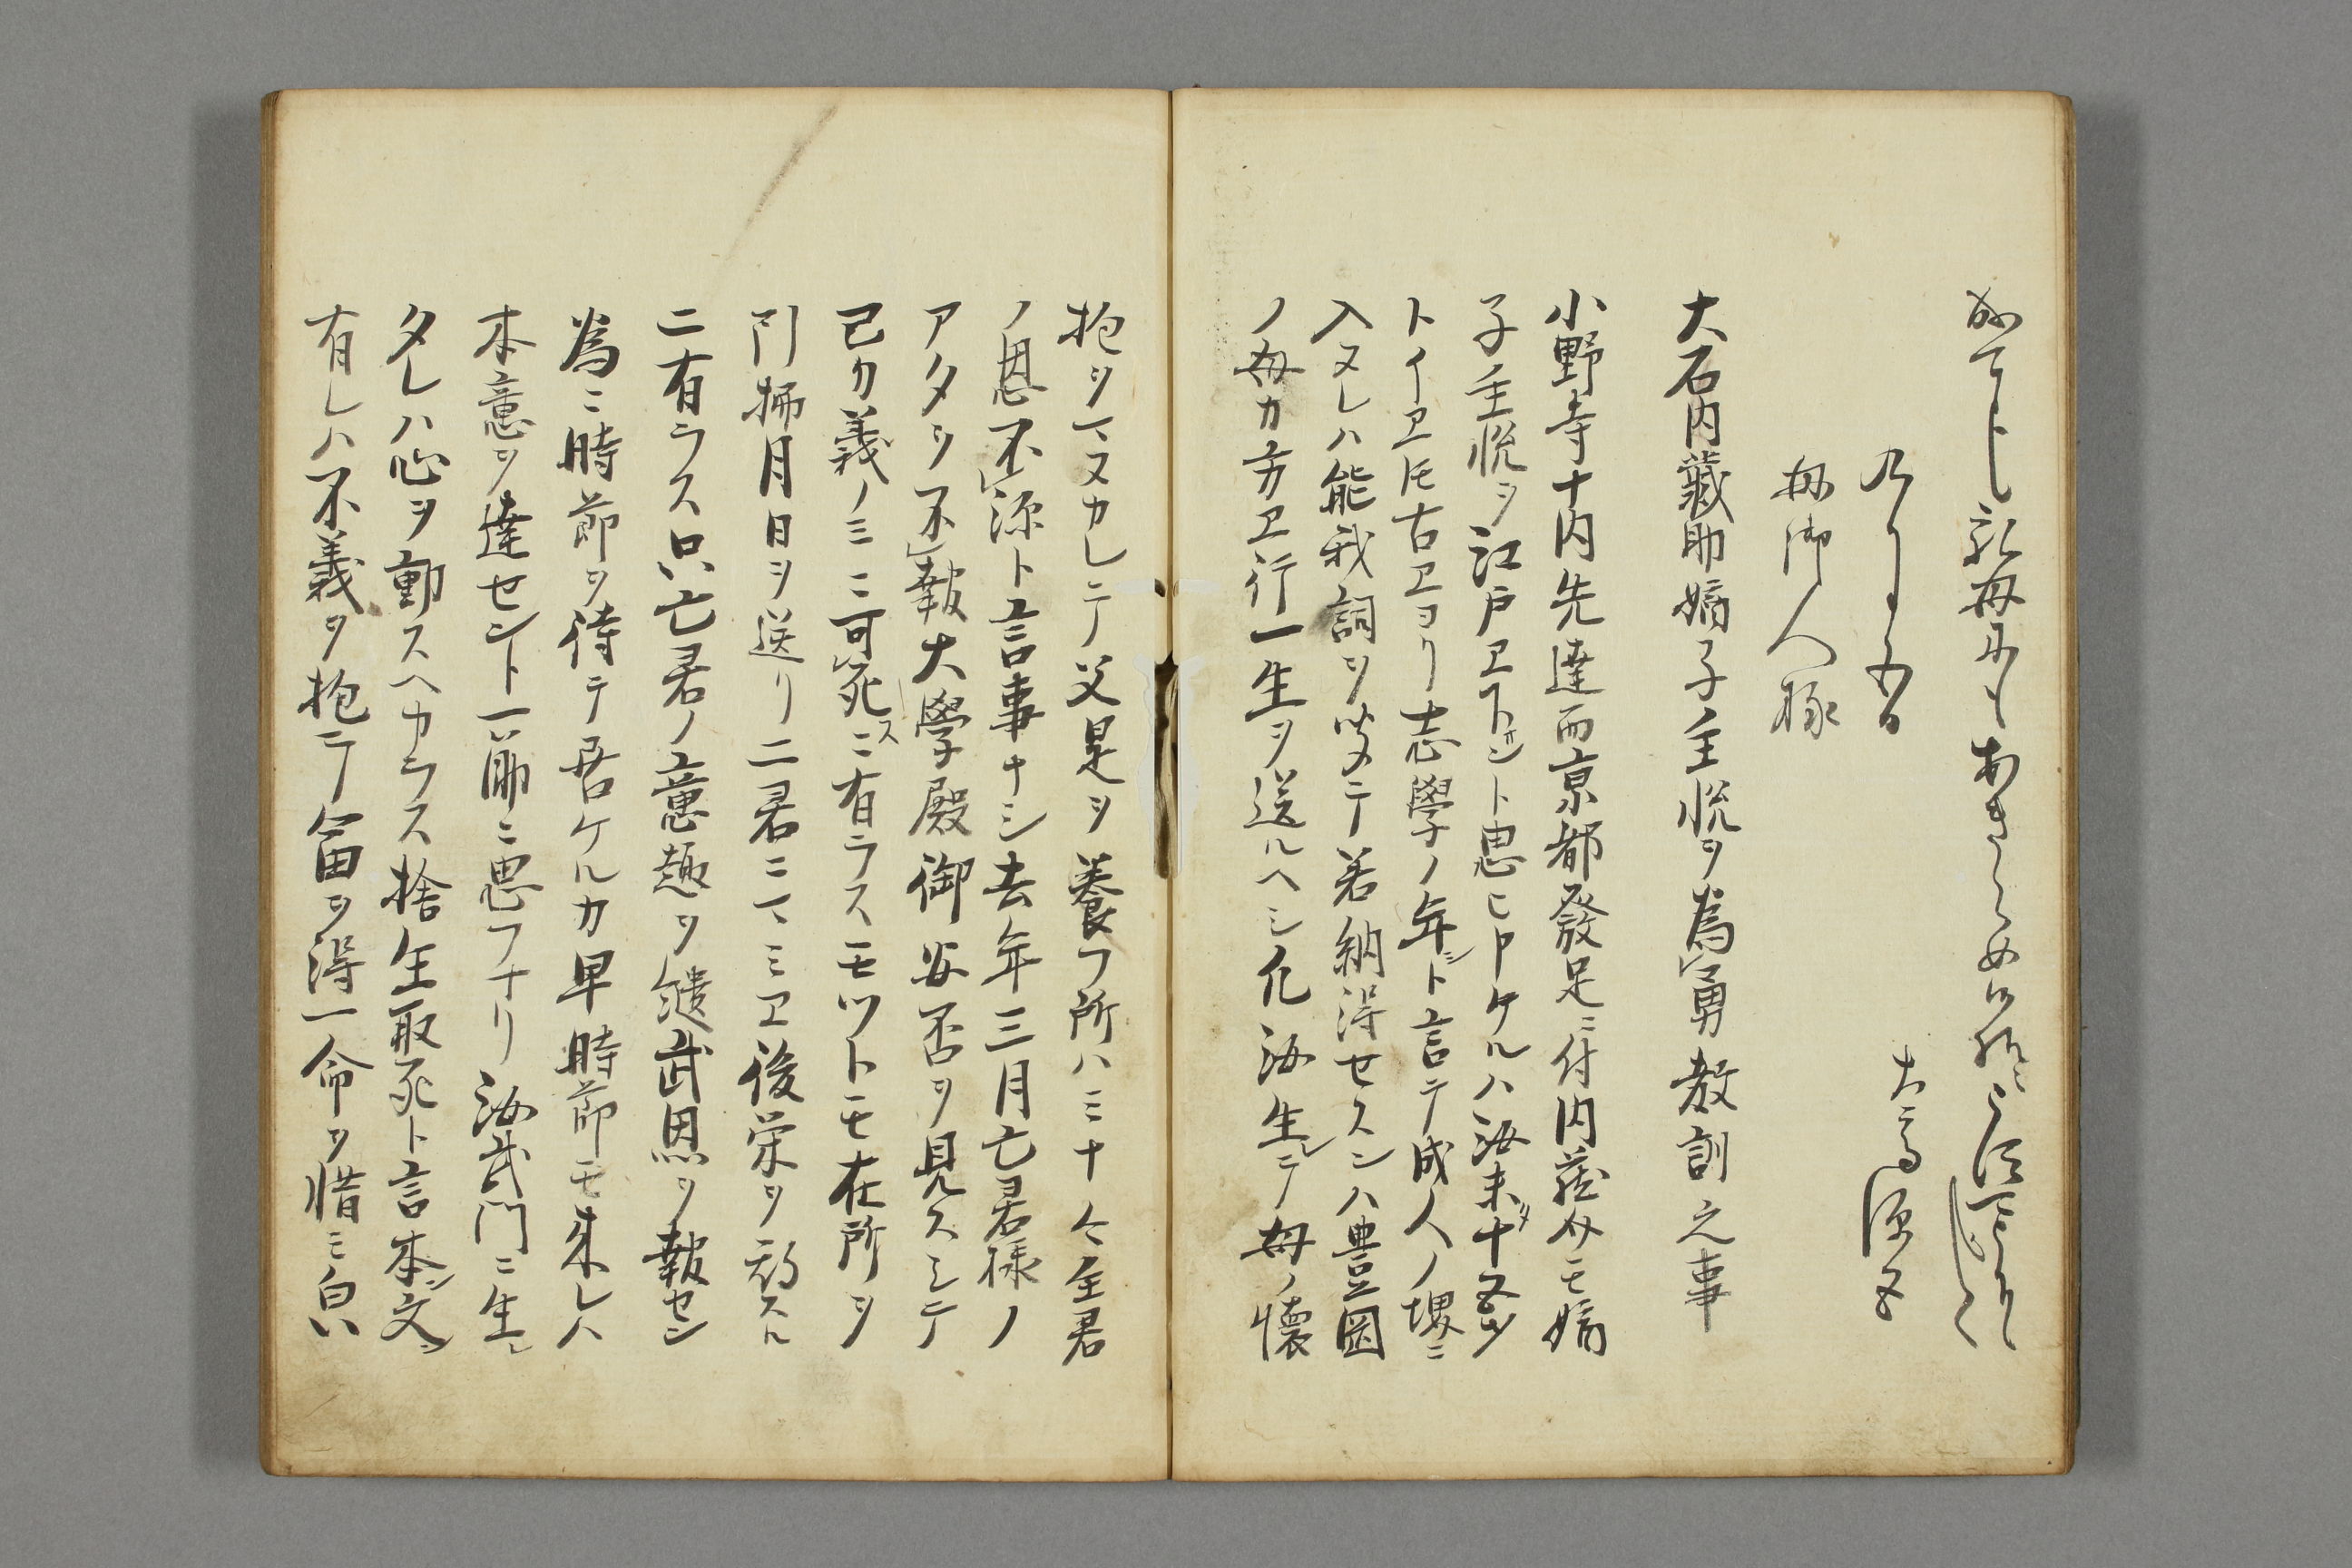 母御人様
大石内藏助嫡子主悦ヲ為勇教訓之事
小野寺十内先達而京都發足ニ付内藏介モ嫡
子主悦ヲ江戸ヱ下サント思ヒ申ケルハ汝未タ十五ツ
トイヱ𪜈古ヱヨリ志學ノ年シト言テ成人ノ堺ニ
入ヌレハ能我詞ヲ守メテ若納得セスンハ豊岡
ノ母カ方ヱ行一生ヲ送ルヘシ凡汝生レテ母ノ懐
抱ヲマヌカレテ父是ヲ養フ所ハミナ今全君
ノ恩不レ源ト言事ナシ去年三月亡君様ノ
アタヲ不レ報大學殿御安否ヲ見スシテ
己カ義ノミニ可レ死スニ有ラスモツトモ在所ヲ
引拂月日ヲ送リ二君ニマミヱ後栄ヲ願スル
ニ有ラス只亡君ノ意趣ヲ継武恩ヲ報セン
為ニ時節ヲ待テ居ケルカ早時節モ来レハ
本意ヲ達セント一筋ニ思フナリ汝武門ニ生レ
タレハ心ヲ動スヘカラス捨生取死ト言本ン文ン
有レハ不義ヲ抱テ富ヲ得一命ヲ惜ミ